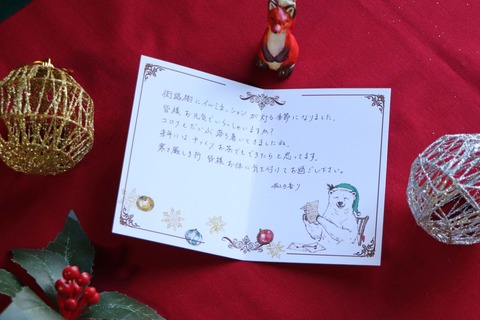 街路樹にイルミネーションが灯る季節になりました。
皆様お元気でいらっしゃいますか?
コロナもだいぶ落ち着いてきましたね。
年明けはゆっくりお茶でもできたらと思ってます。
寒さ厳しき折 皆様お体に気を付けてお過ごし下さい。